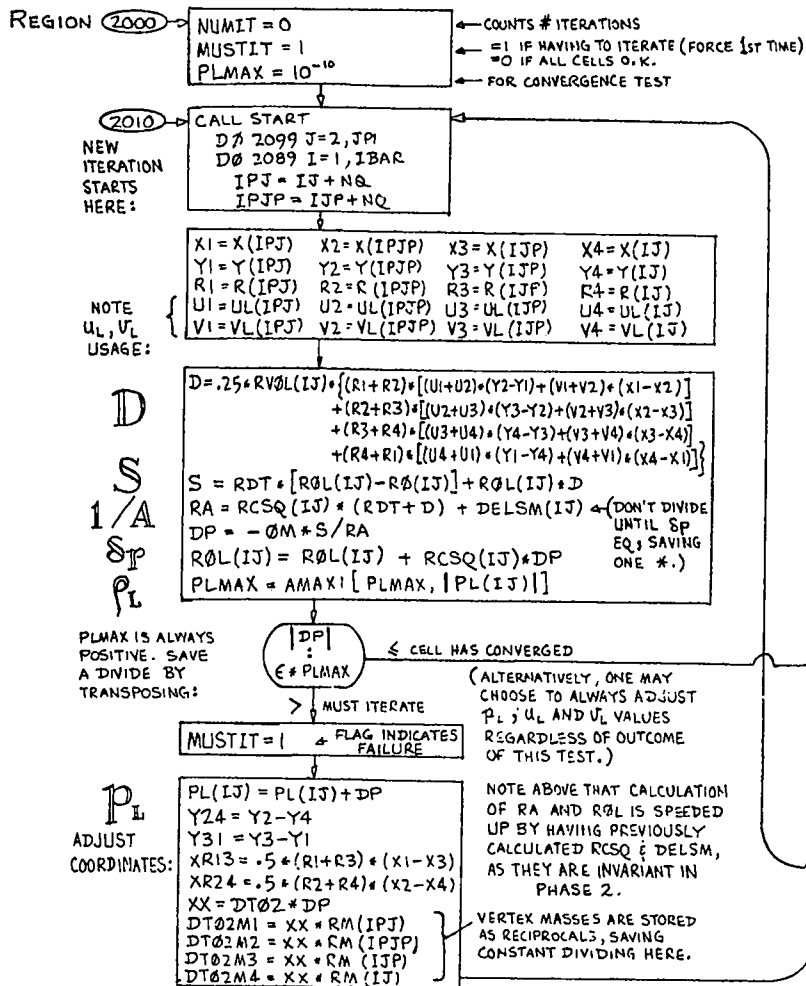 REGION 2000
NUMIT = 0
MUSTIT = 1
PLMAX = 10^-10
COUNTS # ITERATIONS
=1 IF HAVING TO ITERATE (FORCE 1ST TIME)
=0 IF ALL CELLS O.K.
FOR CONVERGENCE TEST
2010
NEW
ITERATION
STARTS
HERE:
CALL START
DØ 2099 J=2,JP1
DØ 2089 I=1,IBAR
IPJ = IJ+NQ
IPJP = IJP+NQ
NOTE
UL, VL
USAGE:
X1=X(IPJ) X2=X(IPJP) X3=X(IJP) X4=X(IJ)
Y1=Y(IPJ) Y2=Y(IPJP) Y3=Y(IJP) Y4=Y(IJ)
R1=R(IPJ) R2=R(IPJP) R3=R(IJP) R4=R(IJ)
U1=UL(IPJ) U2=UL(IPJP) U3=UL(IJP) U4=UL(IJ)
V1=VL(IPJ) V2=VL(IPJP) V3=VL(IJP) V4=VL(IJ)
D
D=.25*RVØL(IJ)*{(R1+R2)*[(U1+U2)*(Y2-Y1)+(V1+V2)*(X1-X2)]
+(R2+R3)*[(U2+U3)*(Y3-Y2)+(V2+V3)*(X2-X3)]
+(R3+R4)*[(U3+U4)*(Y4-Y3)+(V3+V4)*(X3-X4)]
+(R4+R1)*[(U4+U1)*(Y1-Y4)+(V4+V1)*(X4-X1)]}
S
S = RDT*[RØL(IJ)-RØ(IJ)]+RØL(IJ)*D
1/A
RA = RCSQ(IJ)*(RDT+D) + DELSM(IJ)
(DON'T DIVIDE
UNTIL δp
EQ, SAVING
ONE *.)
δp
DP = -ØM*S/RA
ρL
RØL(IJ) = RØL(IJ) + RCSQ(IJ)*DP
PLMAX = AMAX1[PLMAX, |PL(IJ)|]
PLMAX IS ALWAYS
POSITIVE. SAVE
A DIVIDE BY
TRANSPOSING:
|DP|
:
ϵ*PLMAX
≤ CELL HAS CONVERGED
> MUST ITERATE
(ALTERNATIVELY, ONE MAY
CHOOSE TO ALWAYS ADJUST
PL, UL AND VL VALUES
REGARDLESS OF OUTCOME
OF THIS TEST.)
MUSTIT=1
FLAG INDICATES
FAILURE
PL
ADJUST
COORDINATES:
PL(IJ) = PL(IJ)+DP
Y24 = Y2-Y4
Y31 = Y3-Y1
XR13 = .5*(R1+R3)*(X1-X3)
XR24 = .5*(R2+R4)*(X2-X4)
XX = DTØ2*DP
DTØ2M1 = XX*RM(IPJ)
DTØ2M2 = XX*RM(IPJP)
DTØ2M3 = XX*RM(IJP)
DTØ2M4 = XX*RM(IJ)
NOTE ABOVE THAT CALCULATION
OF RA AND RØL IS SPEEDED
UP BY HAVING PREVIOUSLY
CALCULATED RCSQ & DELSM,
AS THEY ARE INVARIANT IN
PHASE 2.
VERTEX MASSES ARE STORED
AS RECIPROCALS, SAVING
CONSTANT DIVIDING HERE.